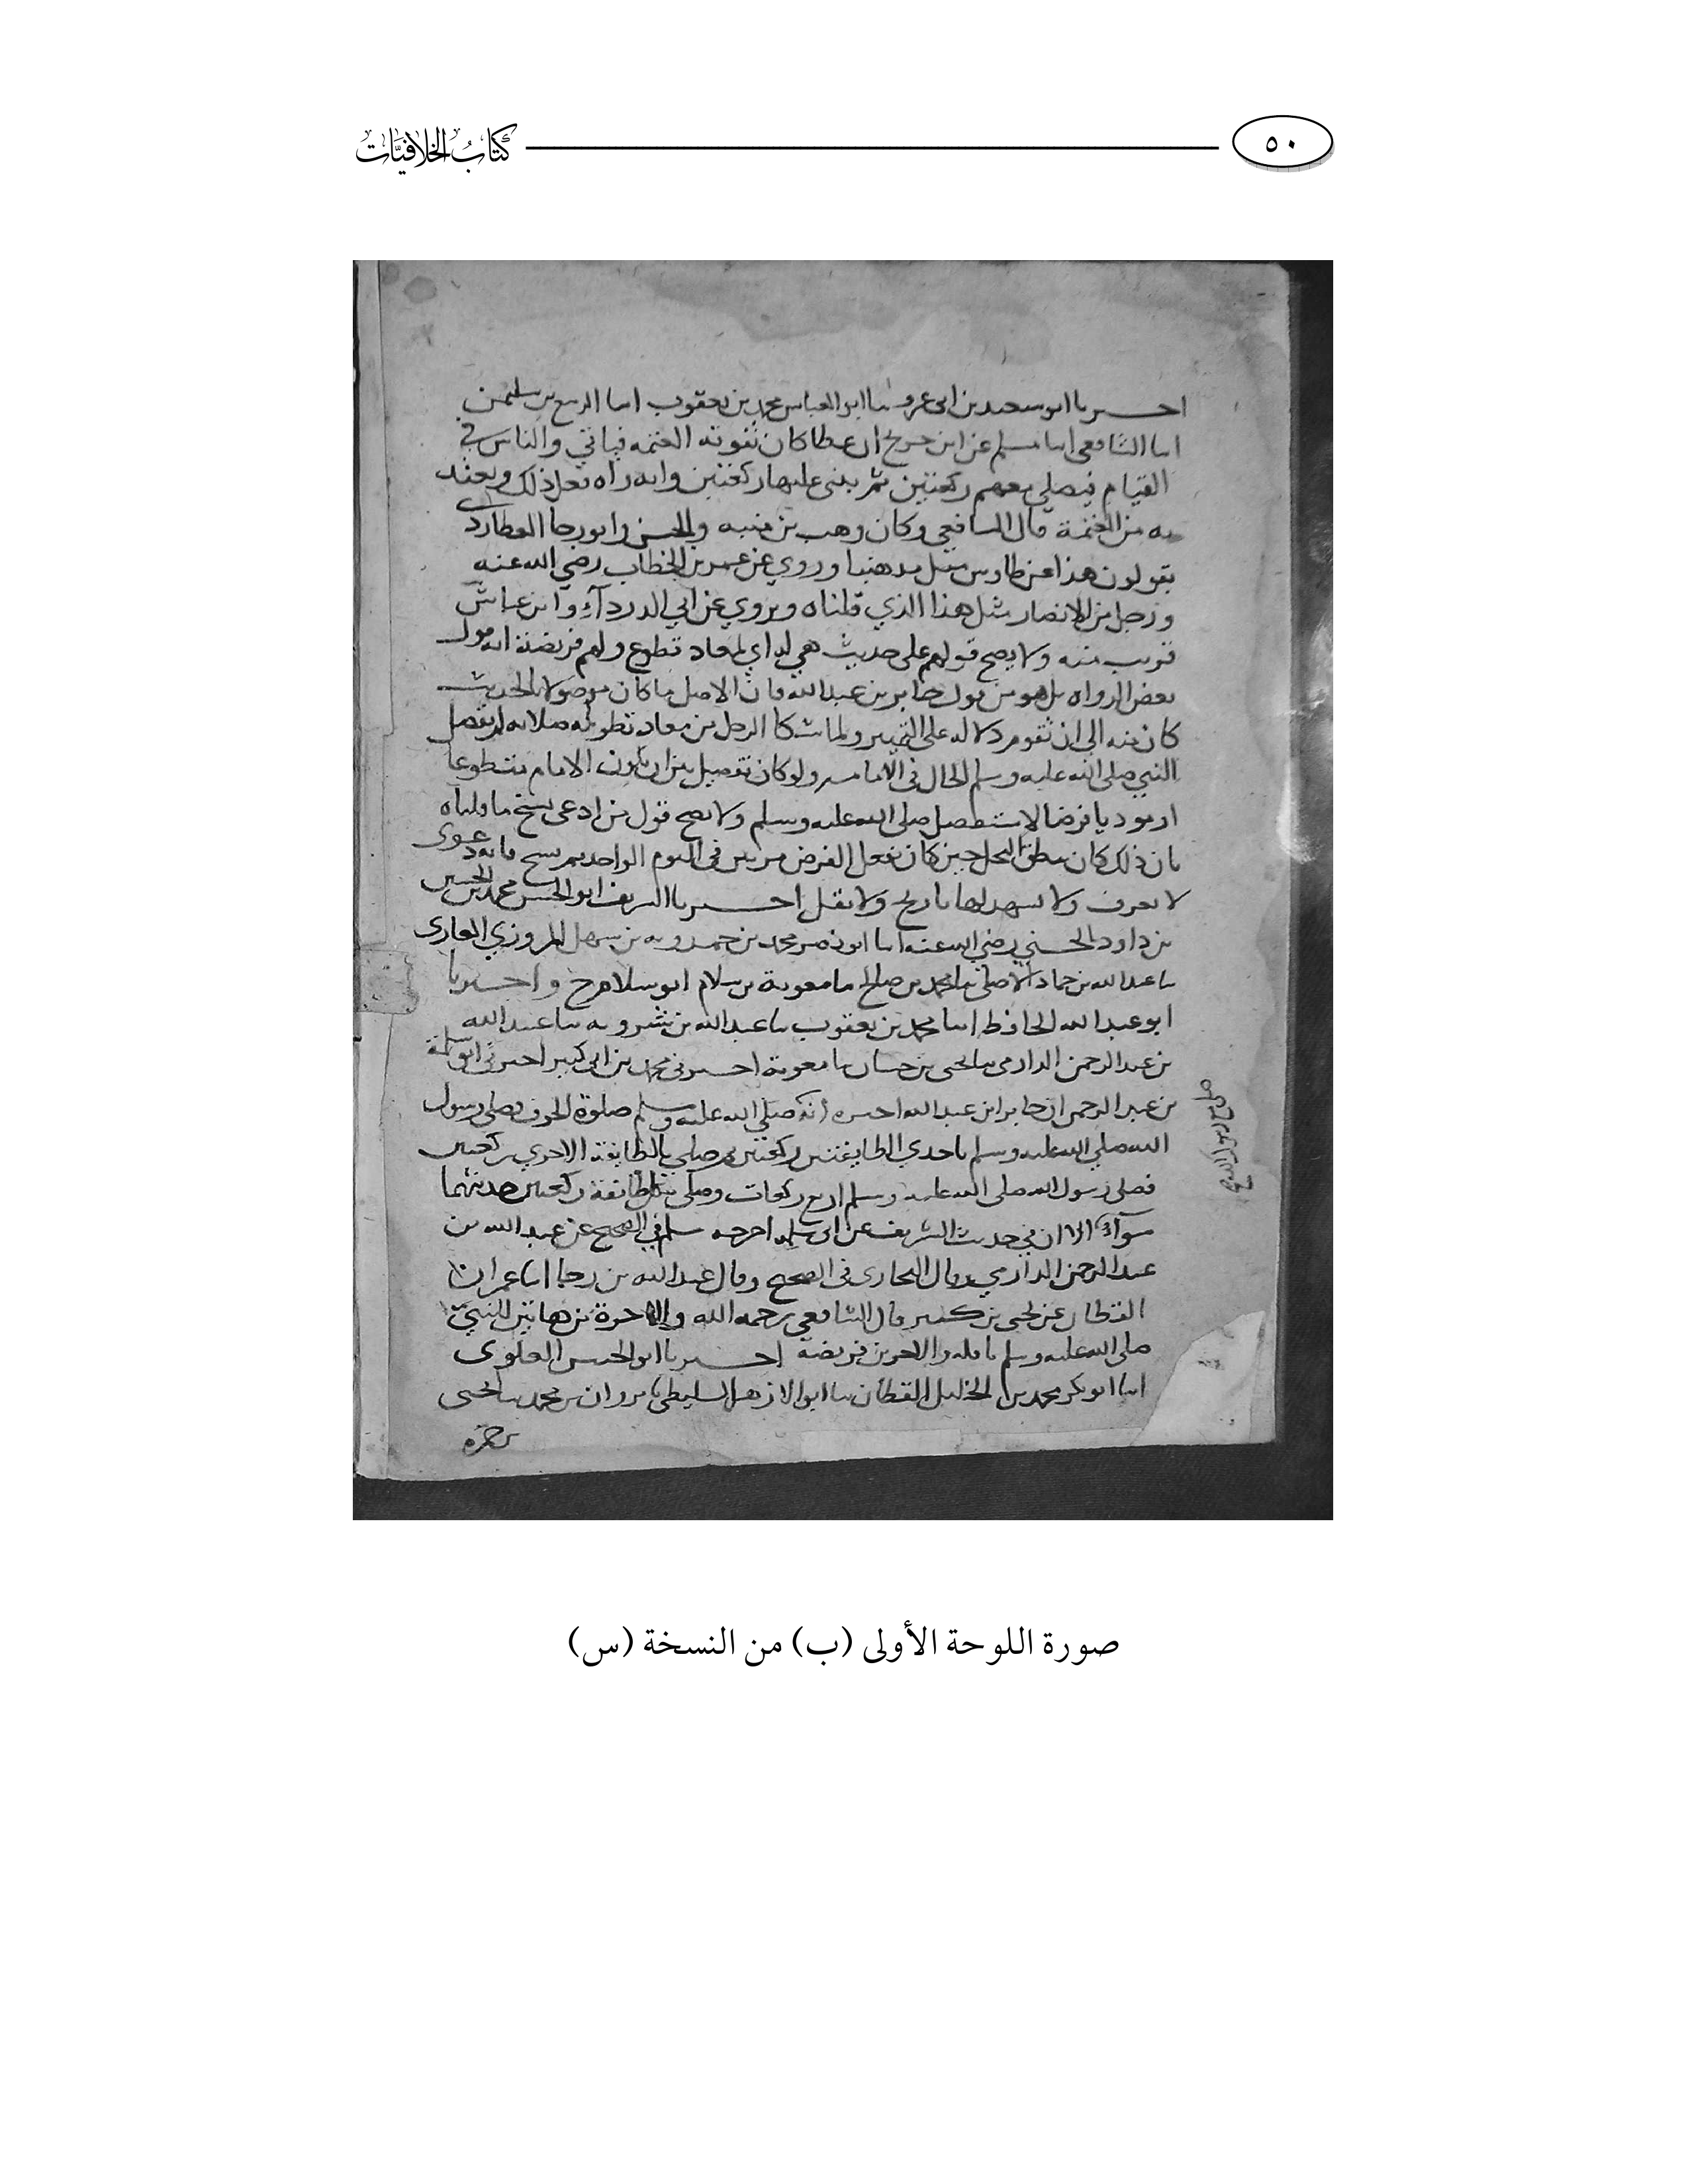 ٥٠
كتاب الخلافيات
احبرنا ابو سعيد بن ابى عمرو سا ابو العباس محمد بن يعقوب اسا الربيع بن سليمن
اسا الشافعى اسا مسلم عن ابن جريج ان عطا كان تفوته العتمه فياتي والناس في
القيام فيصلي معهم ركعتين ثم يبنى عليها ركعتين وانه راه يفعل ذلك ويعتد
به من العتمة قال الشافعي وكان وهب بن منبه والحسن وابو رجا العطاردي
يقولون هذا عن طاوس مثل مذهبنا وروي عن عمر بن الخطاب رضي الله عنه
ورجل من الانصار مثل هذا الذي قلناه ويروي عن ابي الدرداء وابن عباس
قريب منه ولا يصح قولهم على حديث هي له اي لمعاد تطوع ولهم فريضة انه قول
بعض الرواه بل هو من قول جابر بن عبد الله فان الاصل ما كان موصولا بالحديث
كان منه الى ان تقوم دلاله على التمييز ولما شكا الرجل من معاد تطويله صلاته لم
النبي صلى الله عليه وسلم الحال في الامامه ولو كان تفصيل بين ان يكون الامام متطوعا
او موديا فرضا لاستفصل صلى الله عليه وسلم ولا يصح قول من ادعى نسخ ما قلناه
بان ذلك كان حين كان يفعل الفرض مرتين في اليوم الواحد ثم نسخ فانه دعوى
لا تعرف ولا يشهد لها تاريخ ولا نقل احبرنا الشريف ابو الحسن محمد بن الحسين
بن داود الحسني رضي الله عنه اسا ابو نصر محمد بن حمدويه بن سهل المروزي الغازى
سا عبد الله بن حماد الاملي سا محمد بن صالح سا معوية بن سلام ابو سلام ح واحبرنا
ابو عبد الله الحافظ اسا محمد بن يعقوب سا عبد الله بن شرويه سا عبد الله
بن عبد الرحمن الدارمى سا يحيى بن حسان سا معوية احبرنى محمد بن ابى كثير احبرنى ابو سلمة
بن عبد الرحمن ان جابر ابن عبد الله احبره انه صلى الله عليه وسلم صلوة الخوف فصلى رسول
الله صلى الله عليه وسلم باحدي الطايفتين ركعتين ثم صلى بالطايفة الاخرى ركعتين
فصلى رسول الله صلى الله عليه وسلم اربع ركعات وصلى بكل طائفة ركعتين حديثهما
سواء الا ان في حديث الشريف عن ابى سلمه اخرجه مسلم في الصحيح عن عبد الله بن
عبد الرحمن الدارمي وقال البخارى في الصحيح وقال عبد الله بن رجا اسا عمران
القطان عن يحيى بن كثير قال الشافعي رحمه الله والاخرة من هاتين للنبي
صلى الله عليه وسلم نافله وللاخرين فريضة احبرنا ابو الحسن العلوى
اسا ابو بكر محمد بن الخليل القطان سا ابو الازهر السليطى سا مروان بن محمد سا يحيى
بن حمزه
صورة اللوحة الأولى (ب) من النسخة (س)